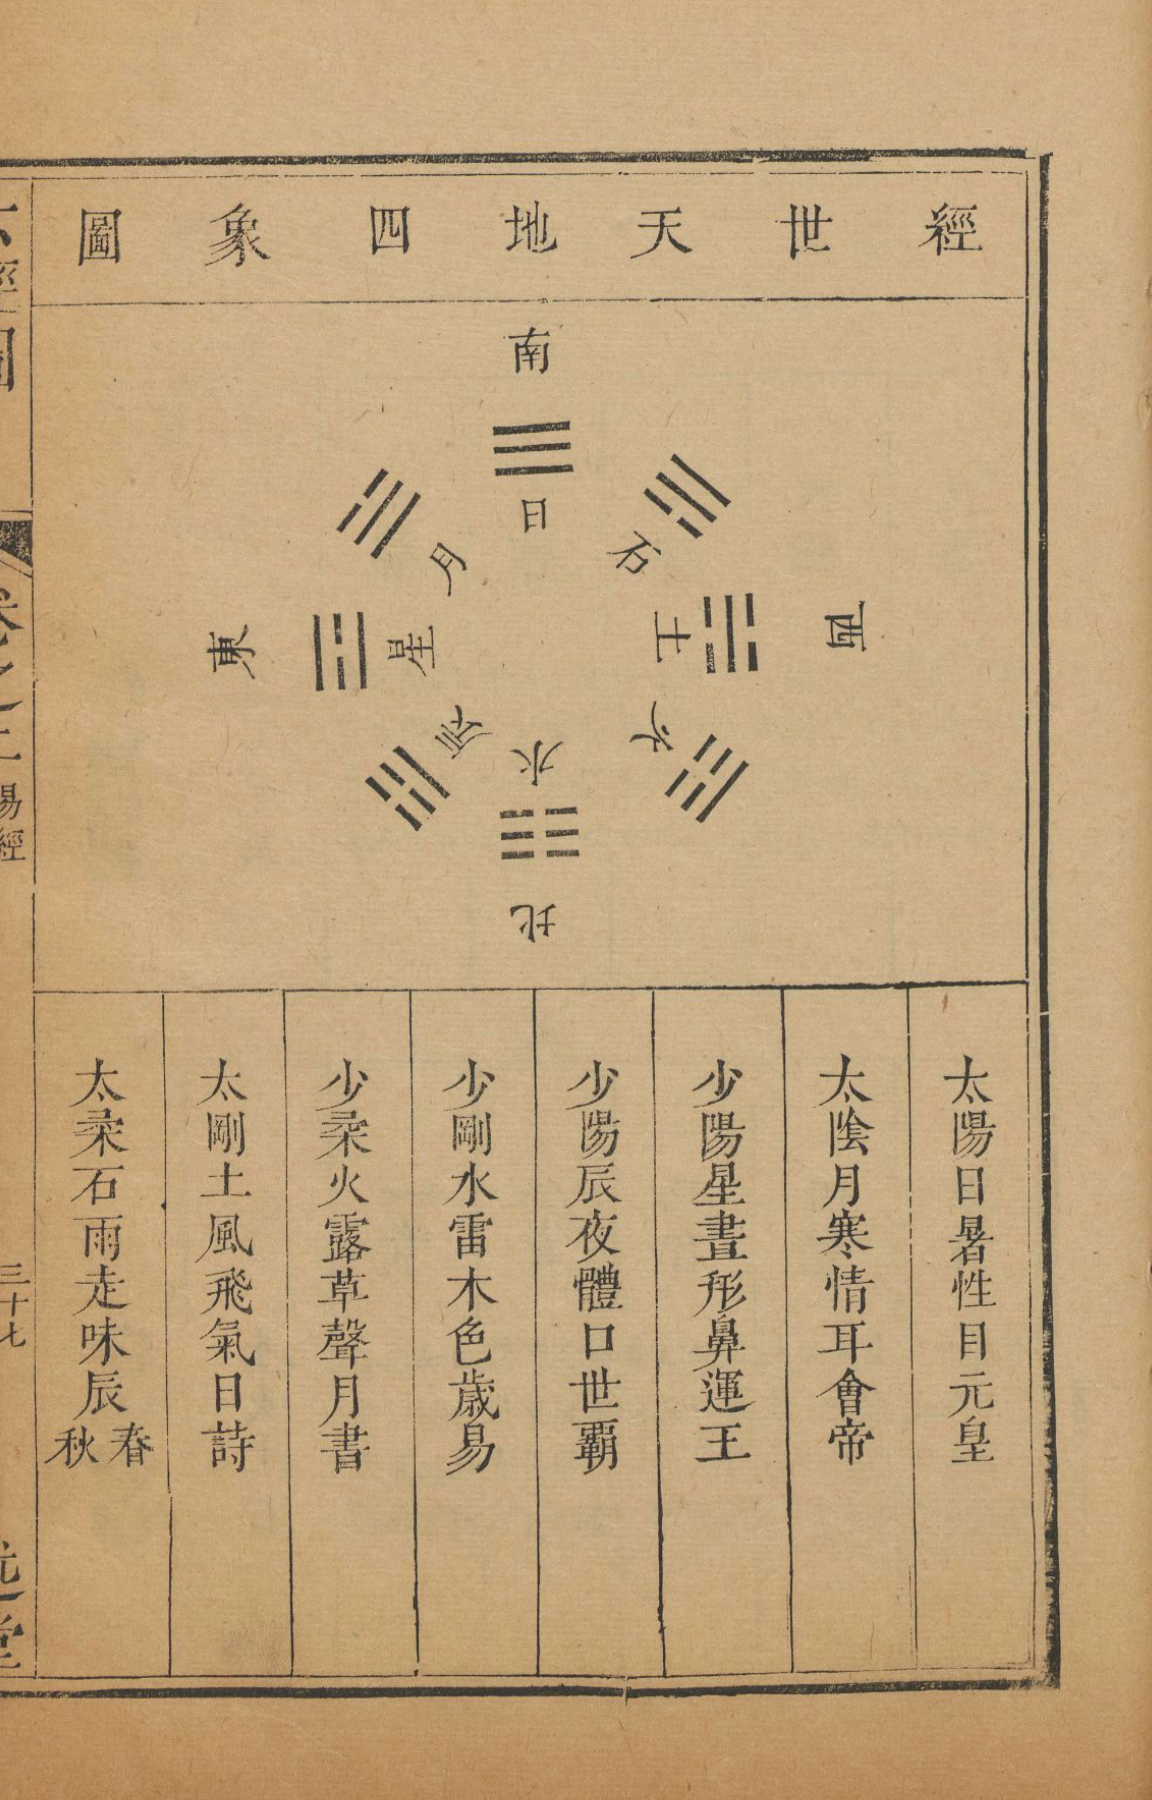 經世天地四象圖
南
日
月
石
東
星
土
西
辰
火
水
北
太陽日暑性目元皇
太陰月寒情耳會帝
少陽星晝形鼻運王
少陽辰夜體口世霸
少剛水雷木色歲易
少柔火露草聲月書
太剛土風飛氣日詩
太柔石雨走味辰春秋
易經
三十七
堂